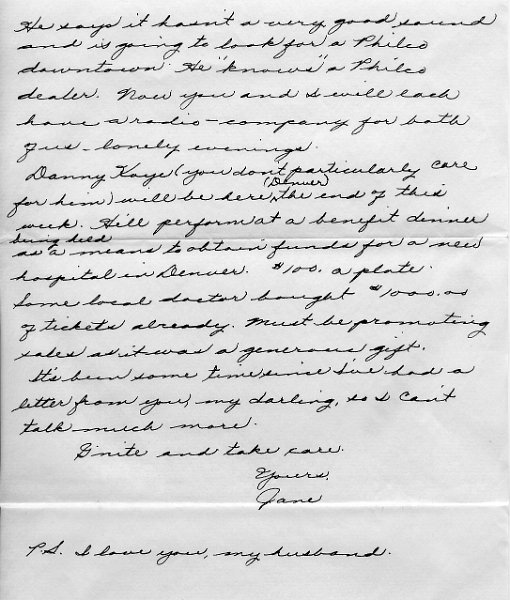 He says it hasn't a very good sound
and is going to look for a Philco
downtown. He "knows" a Philco
dealer. Now you and I will each
have a radio - company for both
of us - lonely evenings.
Danny Kaye (you don't particularly care
for him) will be here (Denver) the end of this
week. He'll perform at a benefit dinner
being held
as a means to obtain funds for a new
hospital in Denver. $100. a plate.
Some local doctor bought $1000.00
of tickets already. Must be promoting
sales as it was a generous gift.
It's been some time since I've had a
letter from you, my darling, so I can't
talk much more.
G'nite and take care.
Yours,
Jane
P.S. I love you, my husband.